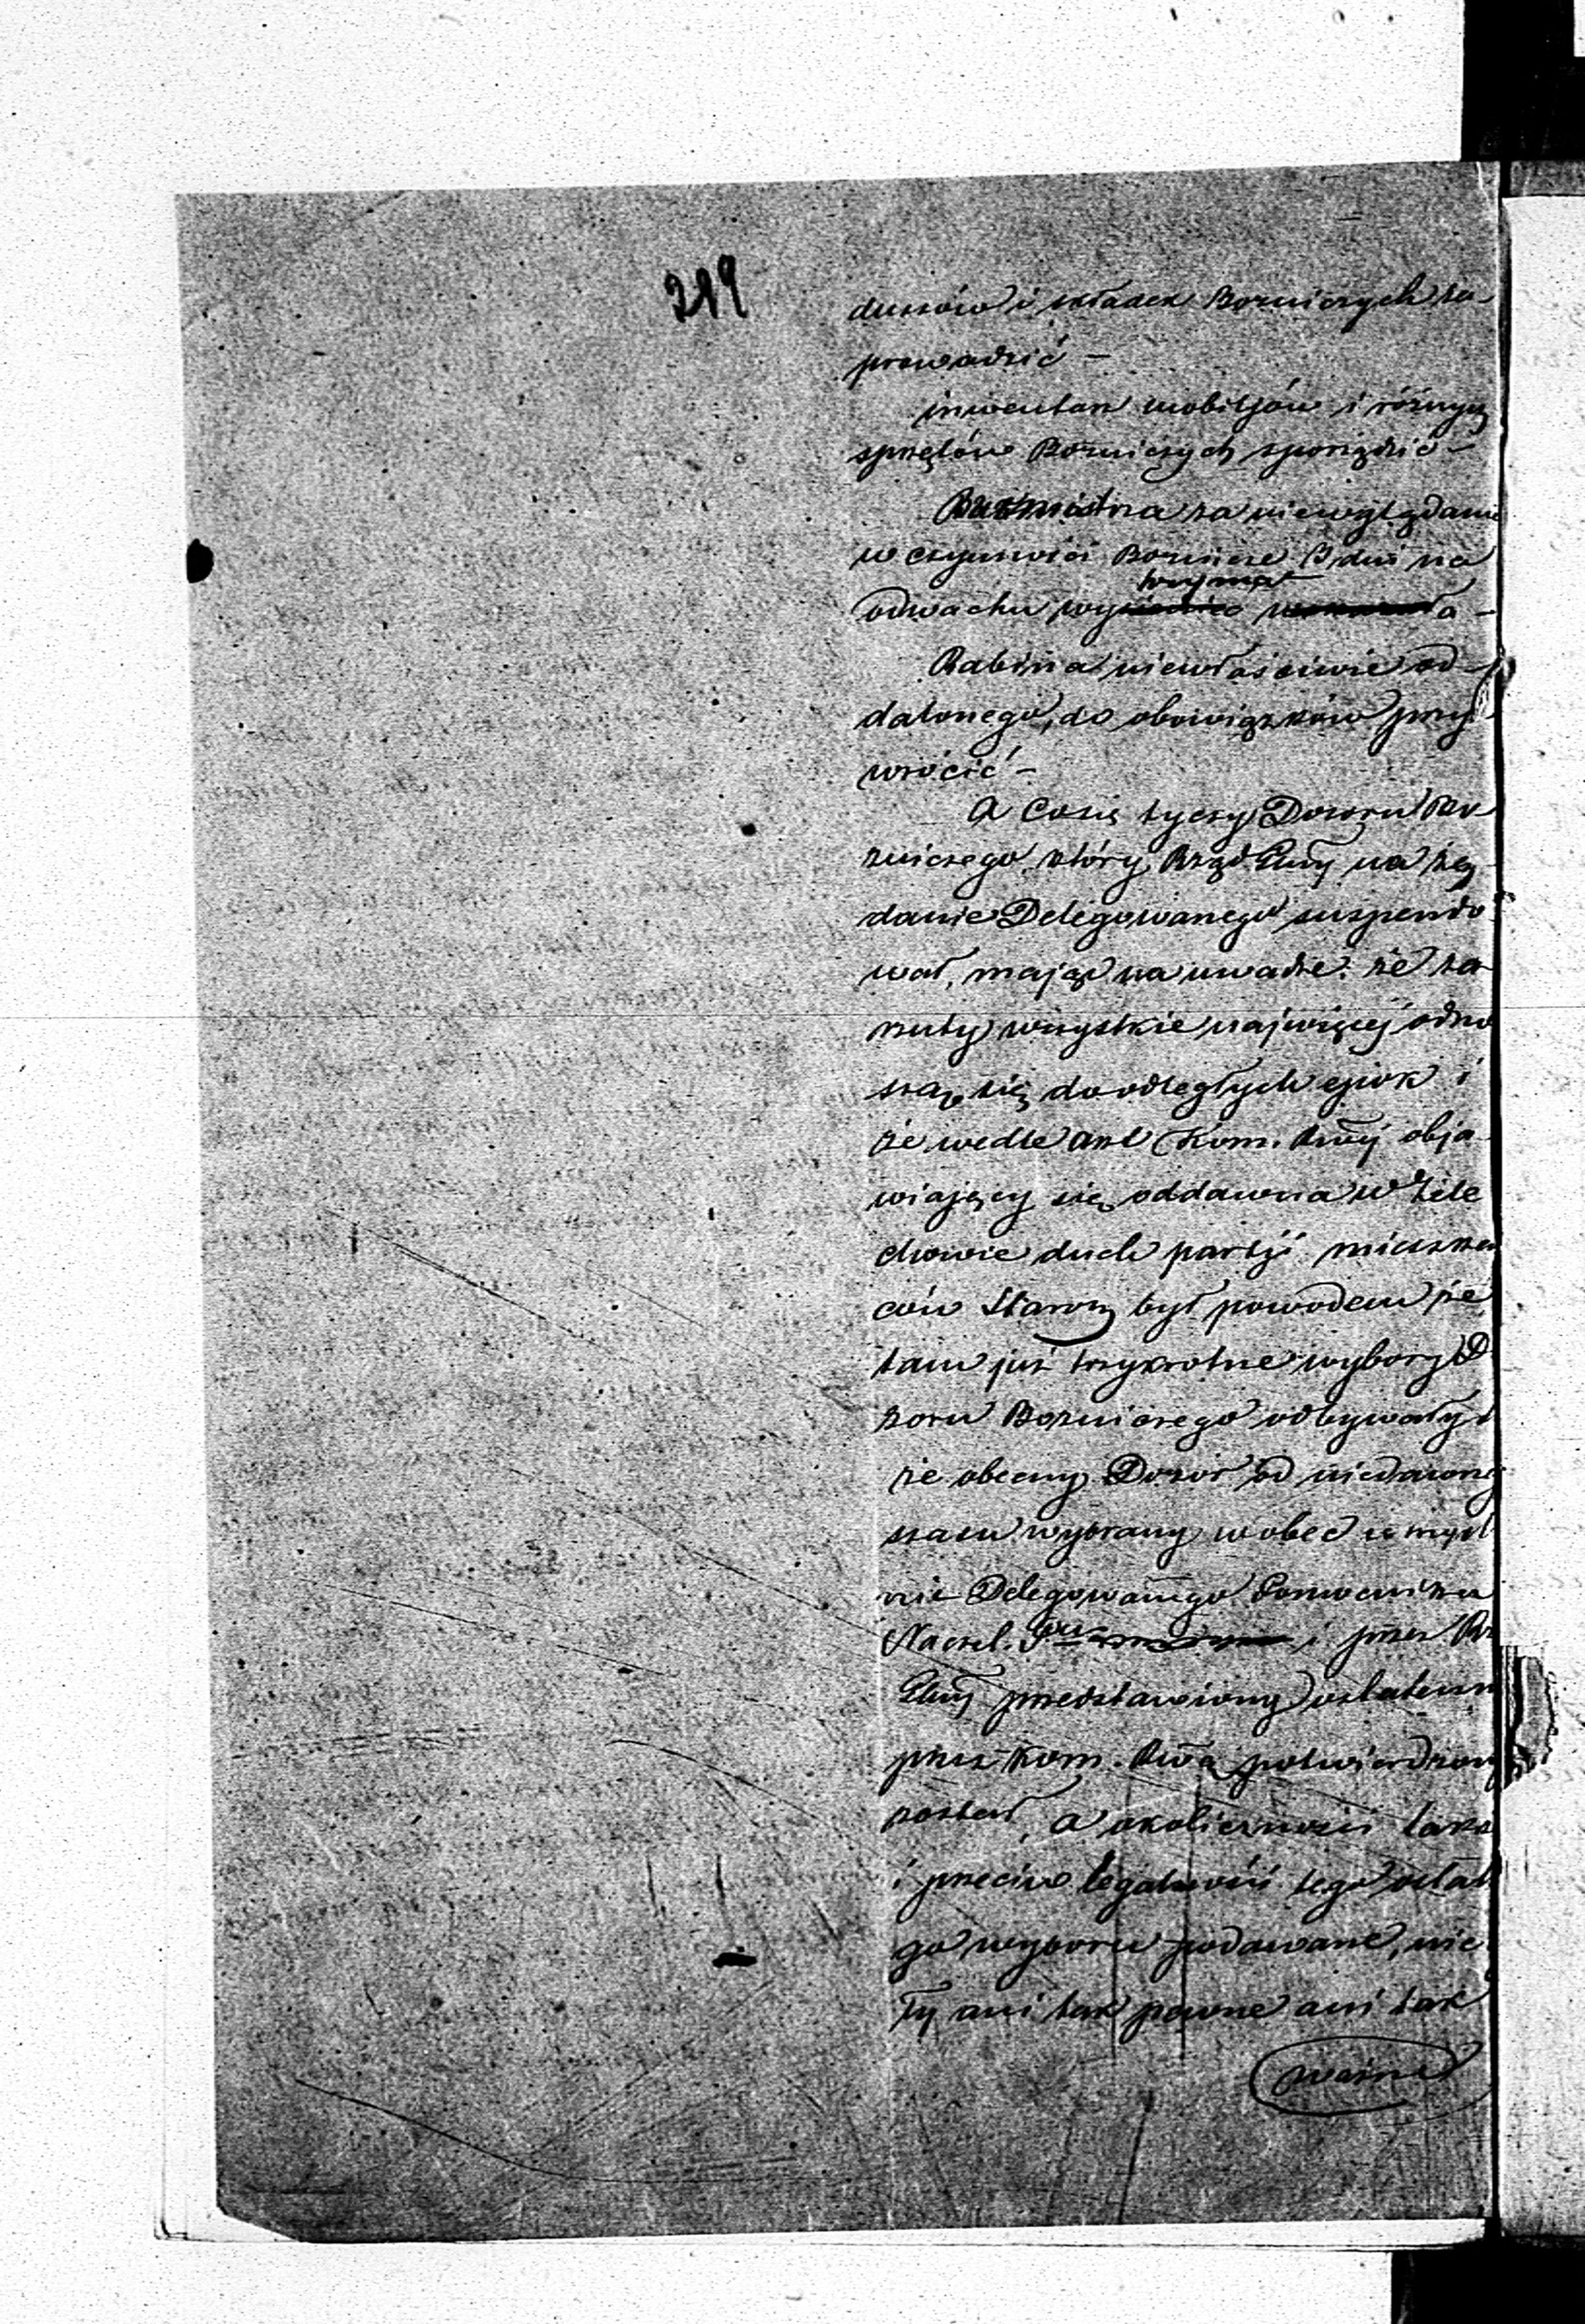 299
duszów i składek Bożniczych za-
prowadzić –
inwentarz mobiljów i różnych
sprzętów Bożniczych sporządzić –
Burmistrza za niewglądanie
w czynności Bożnicze 3 dni na
odwachu wytrzymać
Rabina niewłaściwie od-
dalonego, do obowiązków przy-
wrócić –
A Co się tyczy Dozoru Bó-
żniczego który Rząd Gub̃ny na żą-
danie Delegowanego suspendo-
wał, mając na uwadze: że za-
rzuty wszystkie najwięcej odno-
szą się do odległych epok i
że wedle akt Kom. Rwej obja-
wiający się oddawna w Żele
chowie duch partji mieszkań
ców Staroz był powodem że
tam już trzykrotne wybory Do
zoru Bożniczego odbywały s
że obecny Dozór od niedawnego
czasu wybrany w obec umyśl
nie Delegowanego Pomocnika
Naczel. Ptu i przez Rz
Gub̃ny przedstawiony ostateczn
przez Kom. Rwą potwierdzony
został, a okoliczności takż
i przeciw legalności tego ostat
go wyboru podawane, nie
ły ani tak pewne ani tak
ważne